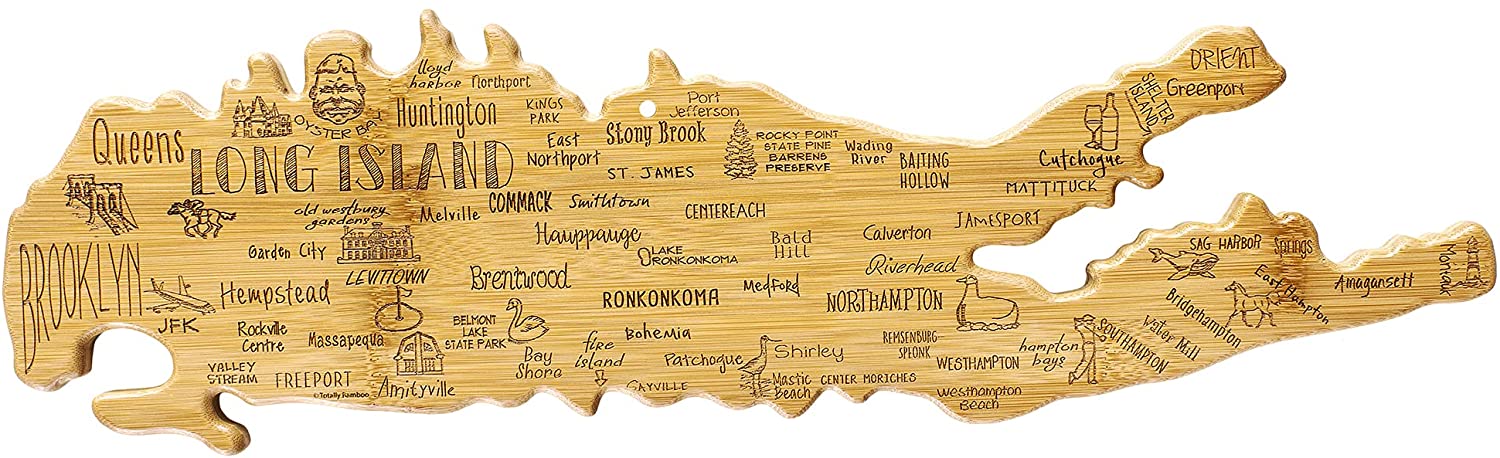 Queens
OYSTER BAY
lloyd
harbor
Northport
Huntington
KINGS
PARK
East
Northport
Port
Jefferson
Stony Brook
ST. JAMES
ROCKY POINT
STATE PINE
BARRENS
PRESERVE
Wading
River
BAITING
HOLLOW
ORIENT
Greenport
SHELTER
ISLAND
Cutchogue
MATTITUCK
JAMESPORT
LONG ISLAND
old westbury
gardens
Melville
COMMACK
Smithtown
CENTEREACH
Hauppauge
LAKE
RONKONKOMA
Bald
Hill
Calverton
Riverhead
BROOKLYN
Garden City
LEVITTOWN
Hempstead
Brentwood
RONKONKOMA
Medford
NORTHAMPTON
JFK
Rockville
Centre
Massapequa
BELMONT
LAKE
STATE PARK
Bohemia
VALLEY
STREAM
FREEPORT
Amityville
Bay
Shore
fire
island
Patchogue
SAYVILLE
Shirley
Mastic
Beach
CENTER MORICHES
REMSENBURG-
SPEONK
WESTHAMPTON
Westhampton
Beach
hampton
bays
SOUTHAMPTON
Water Mill
Bridgehampton
SAG HARBOR
Springs
East Hampton
Amagansett
Montauk
©Totally Bamboo